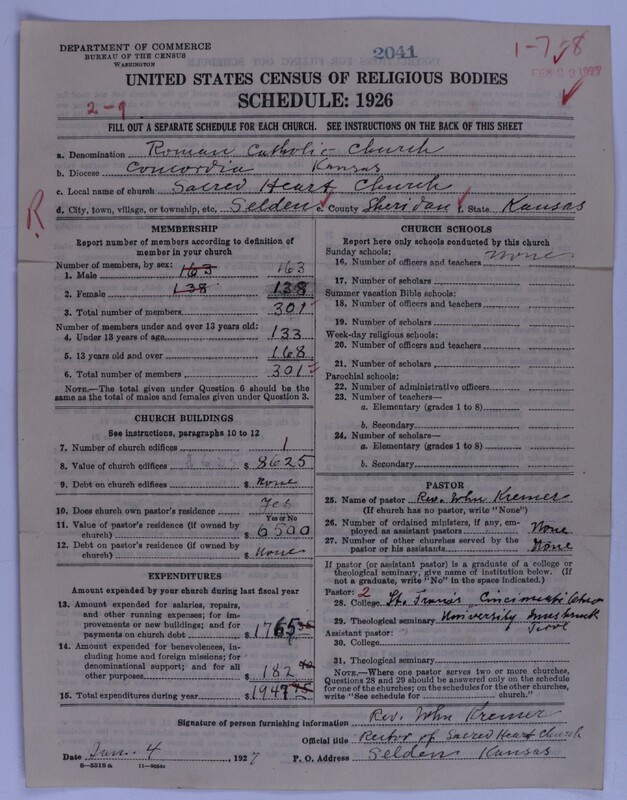 DEPARTMENT OF COMMERCE
BUREAU OF THE CENSUS
WASHINGTON
2041
1-7-28
UNITED STATES CENSUS OF RELIGIOUS BODIES
2-9
SCHEDULE: 1926
FILL OUT A SEPARATE SCHEDULE FOR EACH CHURCH. SEE INSTRUCTIONS ON THE BACK OF THIS SHEET
a. Denomination Roman Catholic Church
b. Diocese Concordia Kansas
c. Local name of church Sacred Heart Church
R
d. City, town, village, or township, etc. Selden e. County Sheridan f. State Kansas
MEMBERSHIP
Report number of members according to definition of member in your church
Number of members, by sex:
1. Male 163 163
2. Female 138 138
3. Total number of members 301
Number of members under and over 13 years old:
4. Under 13 years of age 133
5. 13 years old and over 168
6. Total number of members 301
NOTE.—The total given under Question 6 should be the same as the total of males and females given under Question 3.
CHURCH BUILDINGS
See instructions, paragraphs 10 to 12
7. Number of church edifices 1
8. Value of church edifices $ 8625
9. Debt on church edifices $ None
10. Does church own pastor's residence Yes
Yes or No
11. Value of pastor's residence (if owned by church) $ 6500
12. Debt on pastor's residence (if owned by church) $ None
EXPENDITURES
Amount expended by your church during last fiscal year
13. Amount expended for salaries, repairs, and other running expenses; for improvements or new buildings; and for payments on church debt $ 1765
14. Amount expended for benevolences, including home and foreign missions; for denominational support; and for all other purposes $ 182
15. Total expenditures during year $ 1947
CHURCH SCHOOLS
Report here only schools conducted by this church
Sunday schools:
16. Number of officers and teachers None
17. Number of scholars
Summer vacation Bible schools:
18. Number of officers and teachers
19. Number of scholars
Week-day religious schools:
20. Number of officers and teachers
21. Number of scholars
Parochial schools:
22. Number of administrative officers
23. Number of teachers—
a. Elementary (grades 1 to 8)
b. Secondary
24. Number of scholars—
a. Elementary (grades 1 to 8)
b. Secondary
PASTOR
25. Name of pastor Rev. John Kremer
(If church has no pastor, write "None")
26. Number of ordained ministers, if any, employed as assistant pastors None
27. Number of other churches served by the pastor or his assistants None
If pastor (or assistant pastor) is a graduate of a college or theological seminary, give name of institution below. (If not a graduate, write "No" in the space indicated.)
Pastor: 2
28. College St. Francis Cincinnati Ohio
29. Theological seminary University Innsbruck
Tirol
Assistant pastor:
30. College
31. Theological seminary
NOTE.—Where one pastor serves two or more churches, Questions 28 and 29 should be answered only on the schedule for one of the churches; on the schedules for the other churches, write "See schedule for church."
Signature of person furnishing information Rev. John Kremer
Official title Rector of Sacred Heart Church
Date Jan. 4, 1927 P. O. Address Selden Kansas